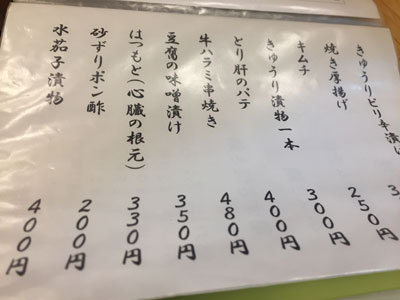 きゅうりピリ辛漬け 3
焼き厚揚げ 250円
キムチ 300円
きゅうり漬物一本 400円
とり肝のパテ 480円
牛ハラミ串焼き 350円
豆腐の味噌漬け 330円
はつもと(心臓の根元) 200円
砂ずりポン酢 400円
水茄子漬物